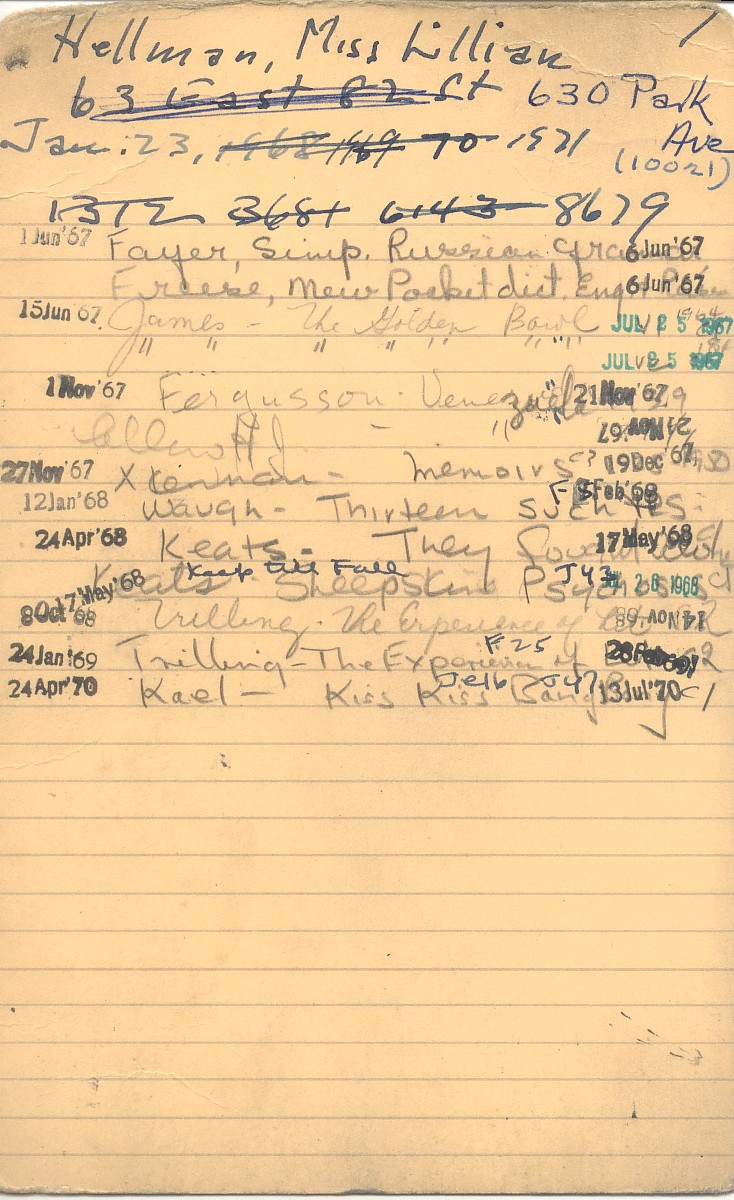 Hellman, Miss Lillian 1
63 East 82 St 630 Park
Jan. 23, 1968 1969 70 1971 Ave
(10021)
1372 3681 6143 8679
1Jun'67 Fayer, Simp. Russian gra 6Jun'67
Freese, New Pocket dict. Eng. 6Jun'67
15Jun'67. James - The Golden Bowl V1 1964 JUL 25 1967
" " " " " " " V2 JUL 25 1967
1Nov'67 Fergusson - Venezuela 21Nov'67
" 21Nov'67
27Nov'67 X Kennan - Memoirs 19Dec'67
12Jan'68 Waugh - Thirteen such F5 5Feb'68
24Apr'68 Keats - They 17May'68
17May'68 Keats - Sheepskin Psychosis Keep till Fall J43 JUL 26 1968 C1
8Oct'68 Trilling - The Experience of 14Nov'68
24Jan'69 Trilling - The Experience of F.25
24Apr'70 Kael - Kiss Kiss Bang Je16 J47 13Jul'70 C1